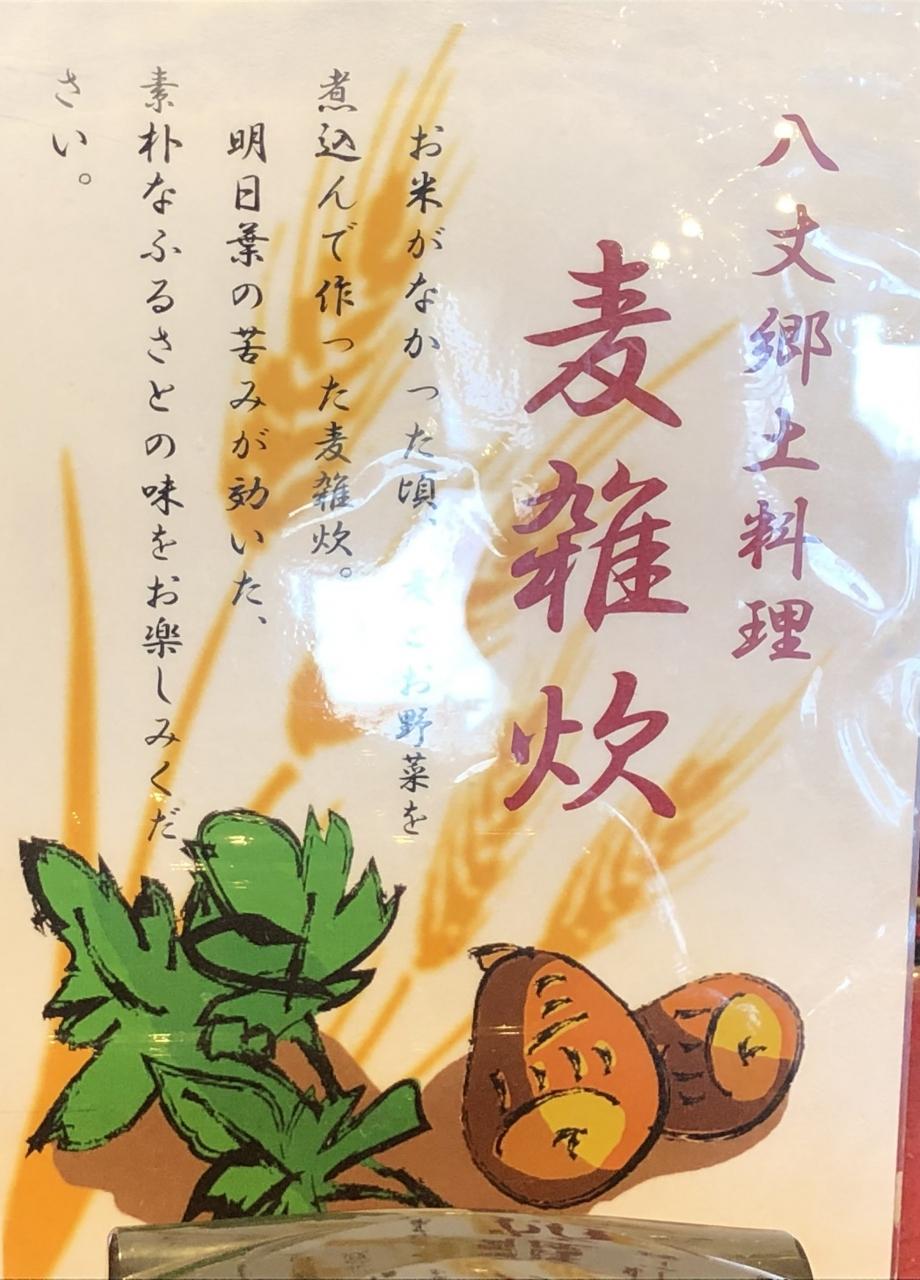 八丈郷土料理
麦雑炊
お米がなかった頃、麦とお野菜を
煮込んで作った麦雑炊。
明日葉の苦みが効いた、
素朴なふるさとの味をお楽しみくだ
さい。